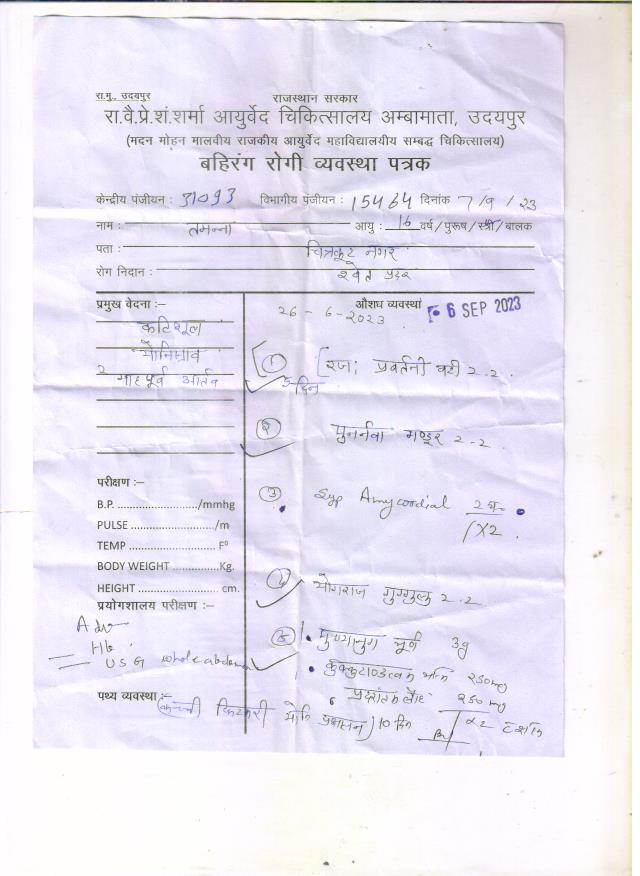 रा.मु., उदयपुर
राजस्थान सरकार
रा.वै.प्रे.शं.शर्मा आयुर्वेद चिकित्सालय अम्बामाता, उदयपुर
(मदन मोहन मालवीय राजकीय आयुर्वेद महाविद्यालयीय सम्बद्ध चिकित्सालय)
बहिरंग रोगी व्यवस्था पत्रक
केन्द्रीय पंजीयन : 31093 विभागीय पंजीयन : 15464 दिनांक 7/9/23
नाम : तमन्ना आयु : 16 वर्ष/पुरूष/स्त्री/बालक
पता : चित्रकूट नगर
रोग निदान : श्वेत प्रदर
प्रमुख वेदना :–
औशध व्यवस्था
26-6-2023
6 SEP 2023
कटिशूल
योनिस्राव
2 माह पूर्व आर्तव
① [रजः प्रवर्तनी वटी 2-2.
5 दिन
② पुनर्नवा मण्डूर 2-2.
③ Syp Amycordial 2 चम्मच
/X2.
④ योगराज गुग्गुलु 2-2.
⑤ पुष्यानुग चूर्ण 3g
कुक्कुटाण्डत्वक भस्म 250mg
प्रदरांतक लौह 250mg
x2
परीक्षण :–
B.P. ......................../mmhg
PULSE ........................../m
TEMP .......................... F⁰
BODY WEIGHT ..............Kg.
HEIGHT .......................... cm.
प्रयोगशालय परीक्षण :–
Adv
Hb
USG whole abdomen
पथ्य व्यवस्था :–
योनि प्रक्षालन) 10 दिन